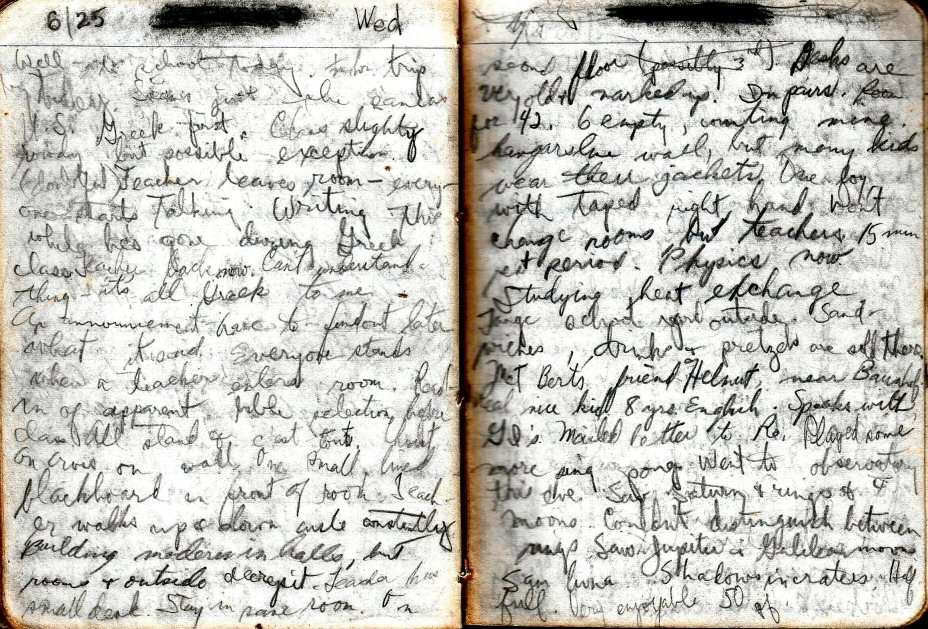 6/25 Wed
Well - to school today.
H.S. Greek first. Class slightly
rowdy but possible exception.
Teacher leaves room - every-
one starts talking. Writing this
while he's gone during Greek
class. Teacher back now. Can't understand a
thing - it's all Greek to me.
An announcement have to find out later
what it said. Everyone stands
when a teacher enters room. Read-
in of apparent bible selection before
class. All stand
on cross on wall. One small lined
blackboard in front of room. Teach-
er walks up & down aisle constantly
Building modern in halls, but
rooms & outside decrepit. Teacher has
small desk. Stay in same room. On
second floor (possibly 3rd) Desks are
very old & marked up. In pairs. Room
for 42. 6 empty, counting mine.
hangers line wall, but many kids
wear their jackets. One boy
with taped right hand. Don't
change rooms but teachers. 15 min
period. Physics now
Studying heat exchange
school right outside. Sand-
wiches, drinks & pretzels are sold there.
Met Bert's friend Helmut, near
Real nice kid, 8 yrs English. Speaks with
GI's. Mailed letter to Ro. Played some
more ping pong. Went to observatory
this eve. Saw Saturn & rings & 4
moons. Couldn't distinguish between
rings. Saw Jupiter & Galilean moons
Saw luna. Shadows in craters. Half
full. Very enjoyable. 50 pf.